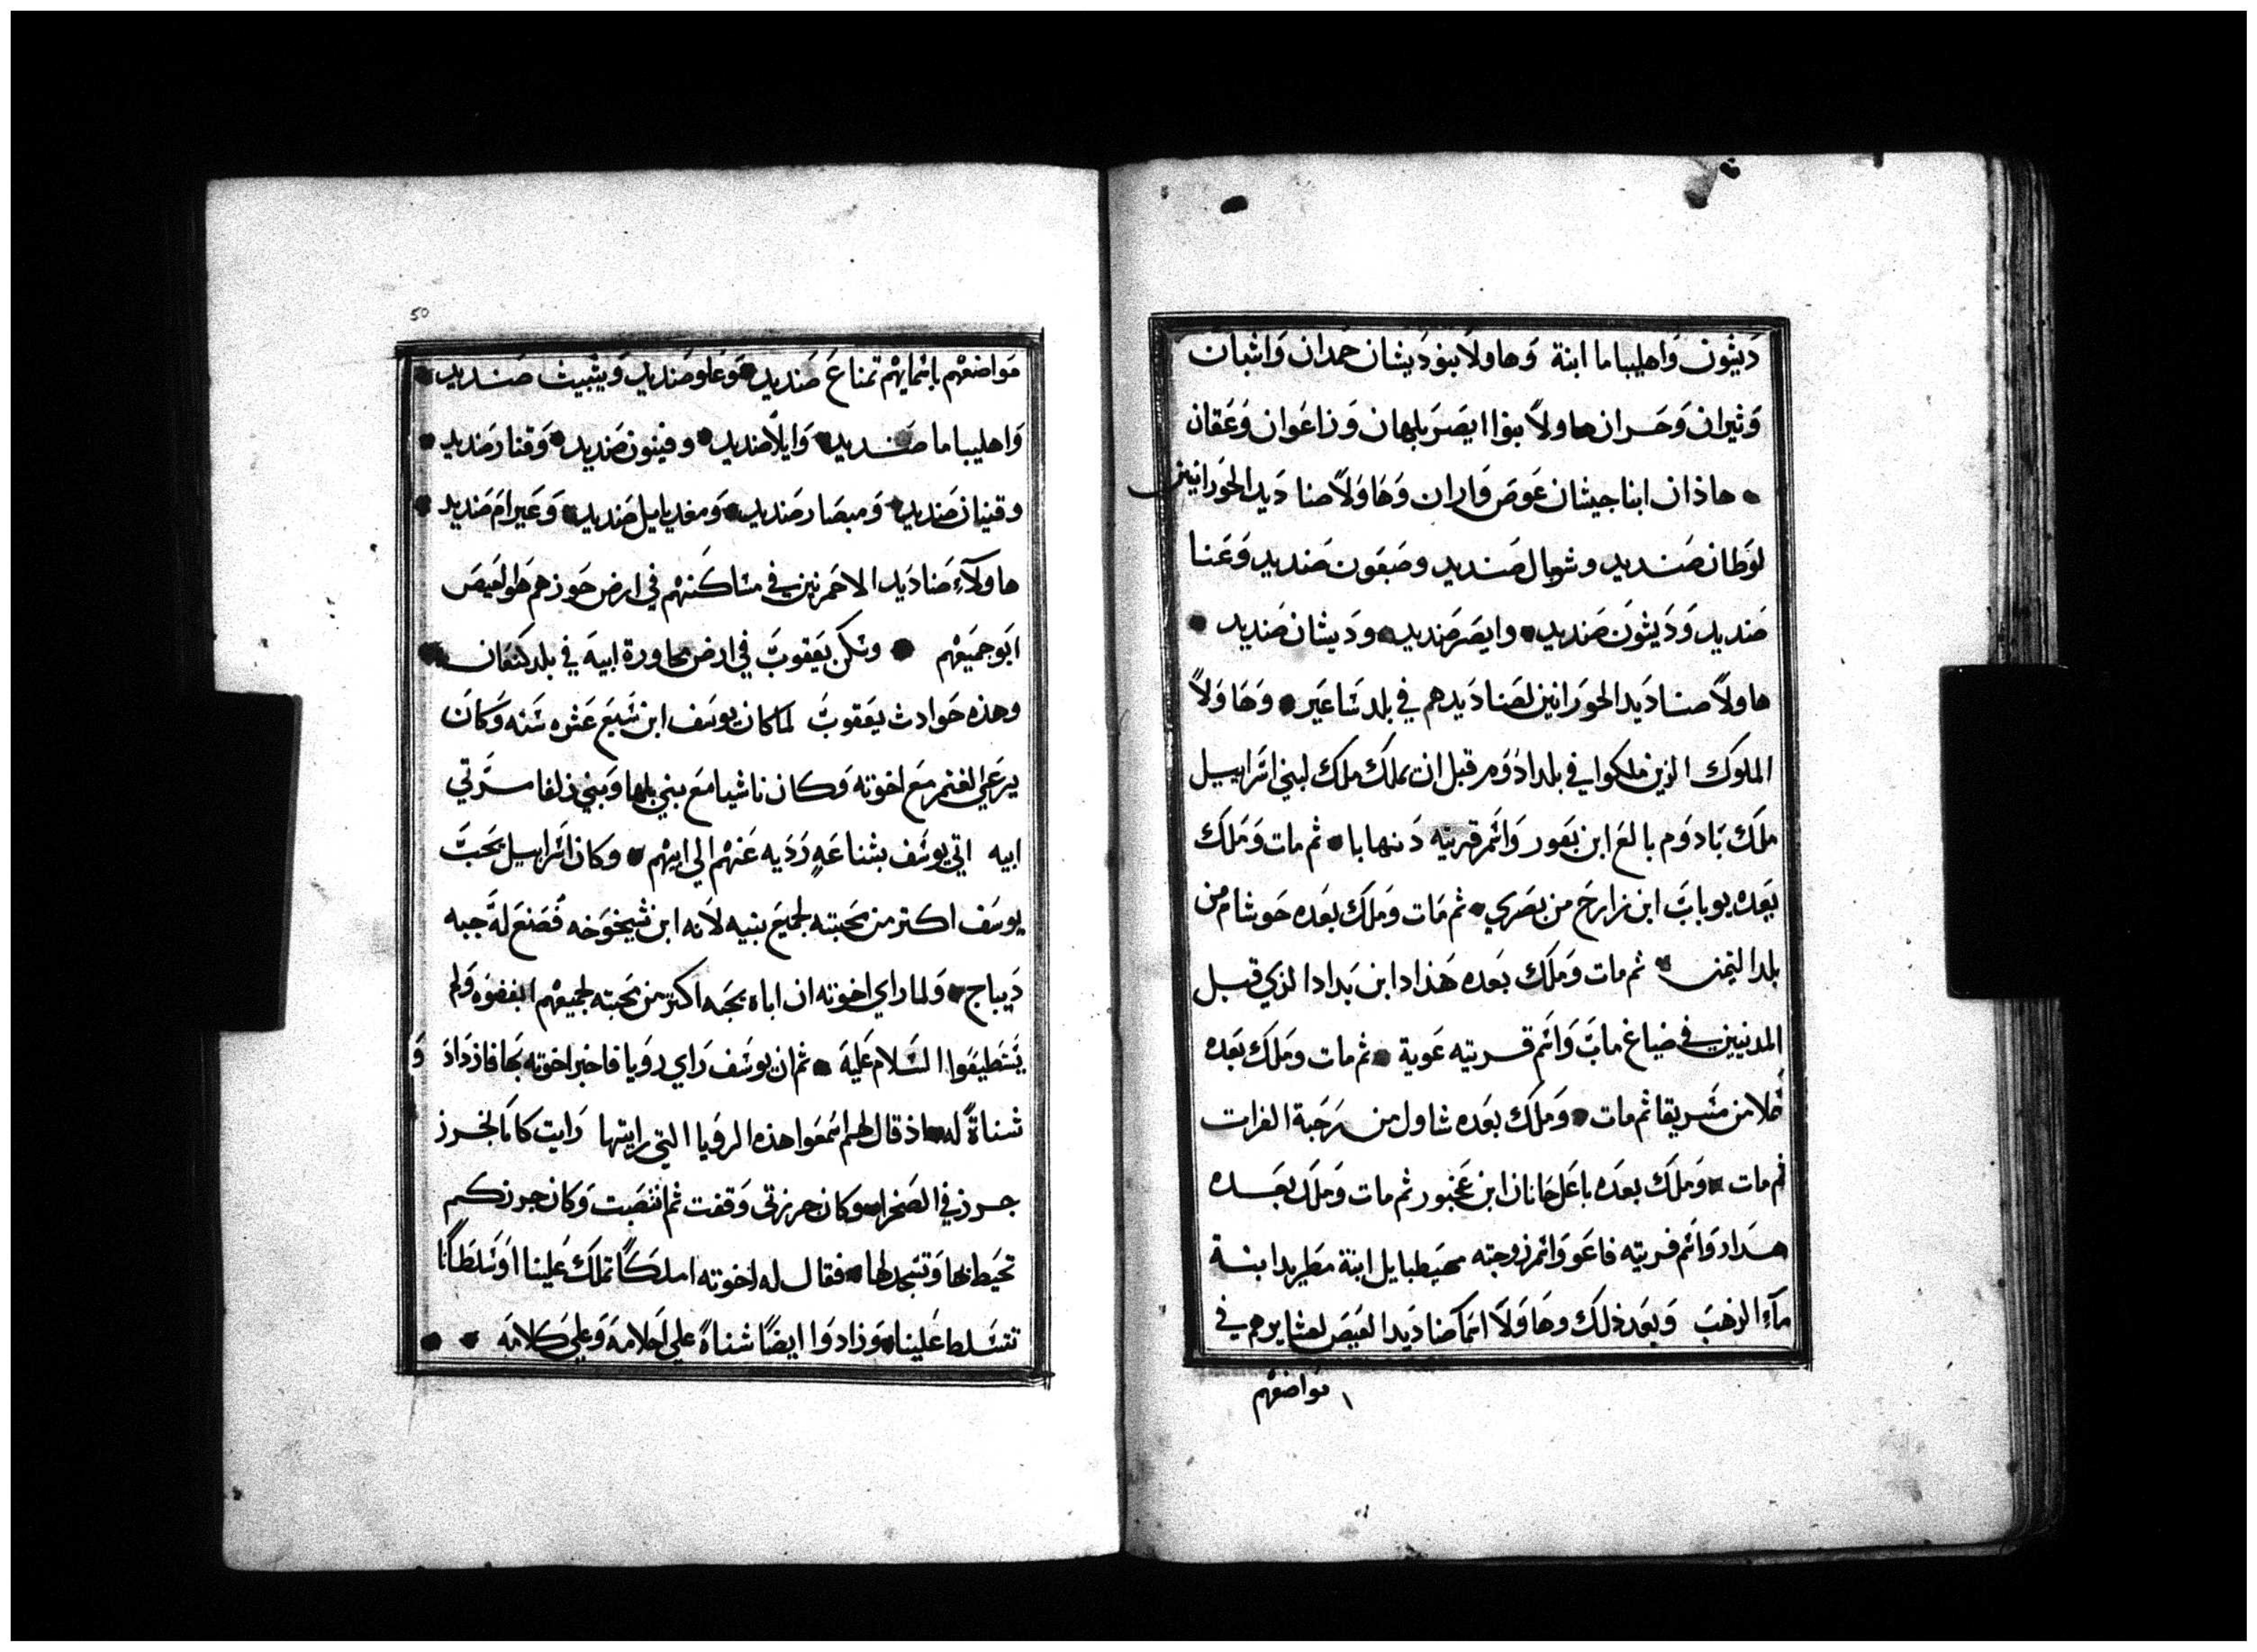 دَيثون وَاهليباما ابنة وَهاولَا بنو دَيشان حمدان وَاشبان
وَثيران وَحَران هاولاً بنوا ايصَر بلهان وَزاعَوان وَعَقان
هاذان ابنا حيشان عَوص وَاران وَهَاوَلاً صنا دَيد الحَورانيين
لوَطان صَنديد وشوبال صَنديد وصَبعَون صَنديد وَعَنا
صَنديد وَدَيثونَ صَنديد وايصَر صَنديد ودَيشان صَنديد
هاولاً صناديَد الحوَرانين لصَنادَيدهم في بلد سَاعَير وَهَاوَلاً
الملوَك الذين ملكوا في بلد ادوَم من قبل ان يملَك ملَك لبني اسَراييل
ملَك بَادوَم بالعَ ابن بَعور وَاسَم قريته دَنهابا ثم مات وَمَلَك
بَعَده يوبابَ ابن زارحَ من بصَري ثم مَات وَملَك بعَده حَوشام من
بلد التيمن ثم مات وَملَك بَعَده هَذاد ابن بَداد الذي قتل
المدنيين في ضياع مابَ وَاسَم قريته عَوية ثم مات ومَلك بعَده
ثم مات وَملَك بعَده شاول من رَحَبة الفرات
ثم مات وَملَك بعدَه باعَل حَانان ابن عَخبور ثم مات وَملَك بعَده
هَداد وَاسَم قريته فاعَو وَاسَم زوجته مهيَطبايل ابنة مَطريد ابنة
مآء الذهَبَ وَبعَد ذلَك وهَاوَلَا اسمَا صَنادَيد العَيصَ لعشايرهم في
مَواضعَهم
50
مَواضعَهم باسَمايهم تمناعَ صَنديد وَعَلو صَنديد وَيثيث صَنديد
وَاهليباما صَنديد وَايلاً صَنديد وفينون صَنديد وَقناز صَنديد
وقنيان صَنديد وَمبصَار صَنديد وَمغديايل صَنديد وَعَيرامَ صَنديد
هاولآءِ صَنادَيد الاحمَرنين في مسَاكَنهم في ارض حَوزهم هَو العَيصَ
ابَو جميَعهم وسَكَن يَعَقوبَ في ارض مجاورة ابيهَ في بلد كنعَان
وهذه حَوادث يعَقوبَ لما كان يوسَف ابن سَبعَ عَشره سَنه وَكانَ
يرعَي الغنم مَع اخوته وَكان ناشيا مَع بني بلها وَبني زلفا سرَّتي
ابيه اتي يوسَف بشناعَهٍ رَدَيه عَنهم الي ابيهم وكان اسَراييل يحَبَّ
يوسَف اكتر من محَبته لجميعَ بنيه لاَنه ابن شيخوَخه فصَنعَ لهَ جبه
دَيباج وَلما راي اخوته ان اباه يحَبه اكتر من محَبته لجميعَهم ابغضوَه وَلم
يسَتطيعَوا السَلام عَليهَ ثم ان يوسَف رَاي رويا فاخبر اخوته بَها فازدَادَ وَ
شناةً له اذ قال لهم اسَمعَوا هذه الروَيا التي رايتها رَايت كانا نخرز
جرز في الصَحرا وكان جرزتي وَقفت ثم انتصَبت وَكان جرزكم
تحَيَط بها وَتسَجد لها فقال له اخوته املكَاً تملَك عَلينا اوَسَلطَانا
تتسَلط عَلينا وَزادوَا ايضاً شناةً علي احَلامهَ وَعَلي كَلامهَ